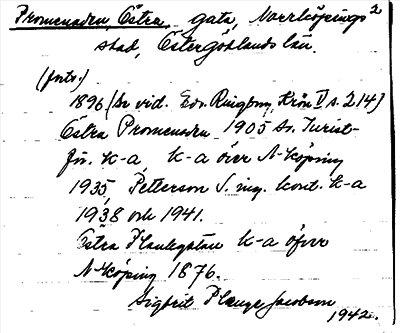 Promenaden, Östra, gata, Norrköpings 2
stad, Östergötlands län.
(forts.)
1896 (br vid. Edv. Ringborg, Krön V s. 214)
Östra Promenaden 1905 Sv. Turist-
för. k-a, k-a över N-köping
1935, Petterson S. ing. kont. k-a
1938 och 1941.
Östra Plankgatan k-a öfver
N-köping 1876.
Sigbrit Plænge Jacobson
1942.